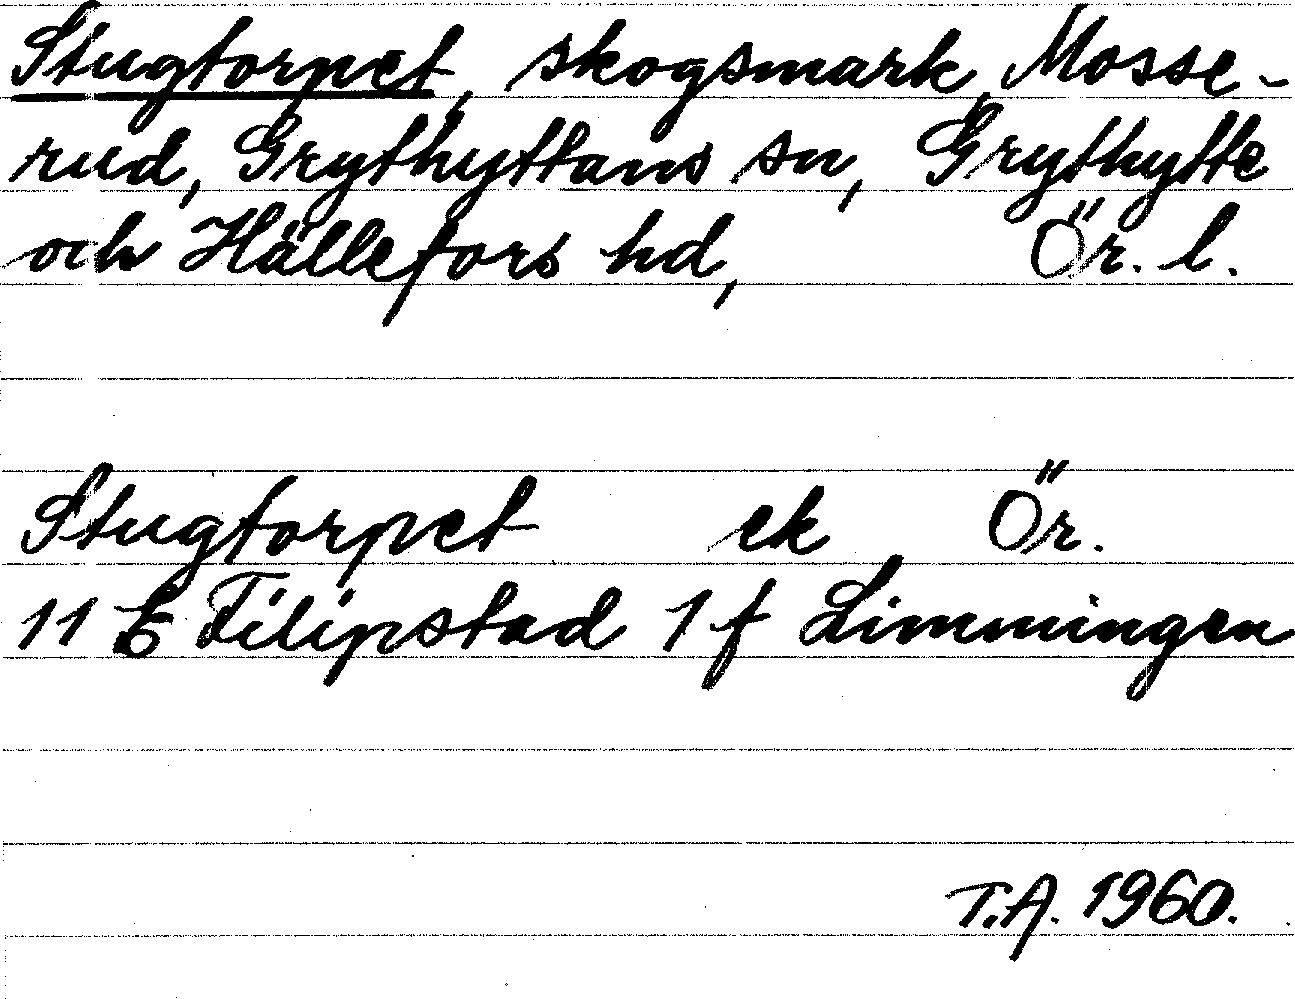 Stugtorpet, skogsmark, Mosse-
rud, Grythyttans sn, Grythytte
och Hällefors hd, Ör. l.
Stugtorpet ek Ör.
11 E Filipstad 1 f Limmingen
T.A. 1960.